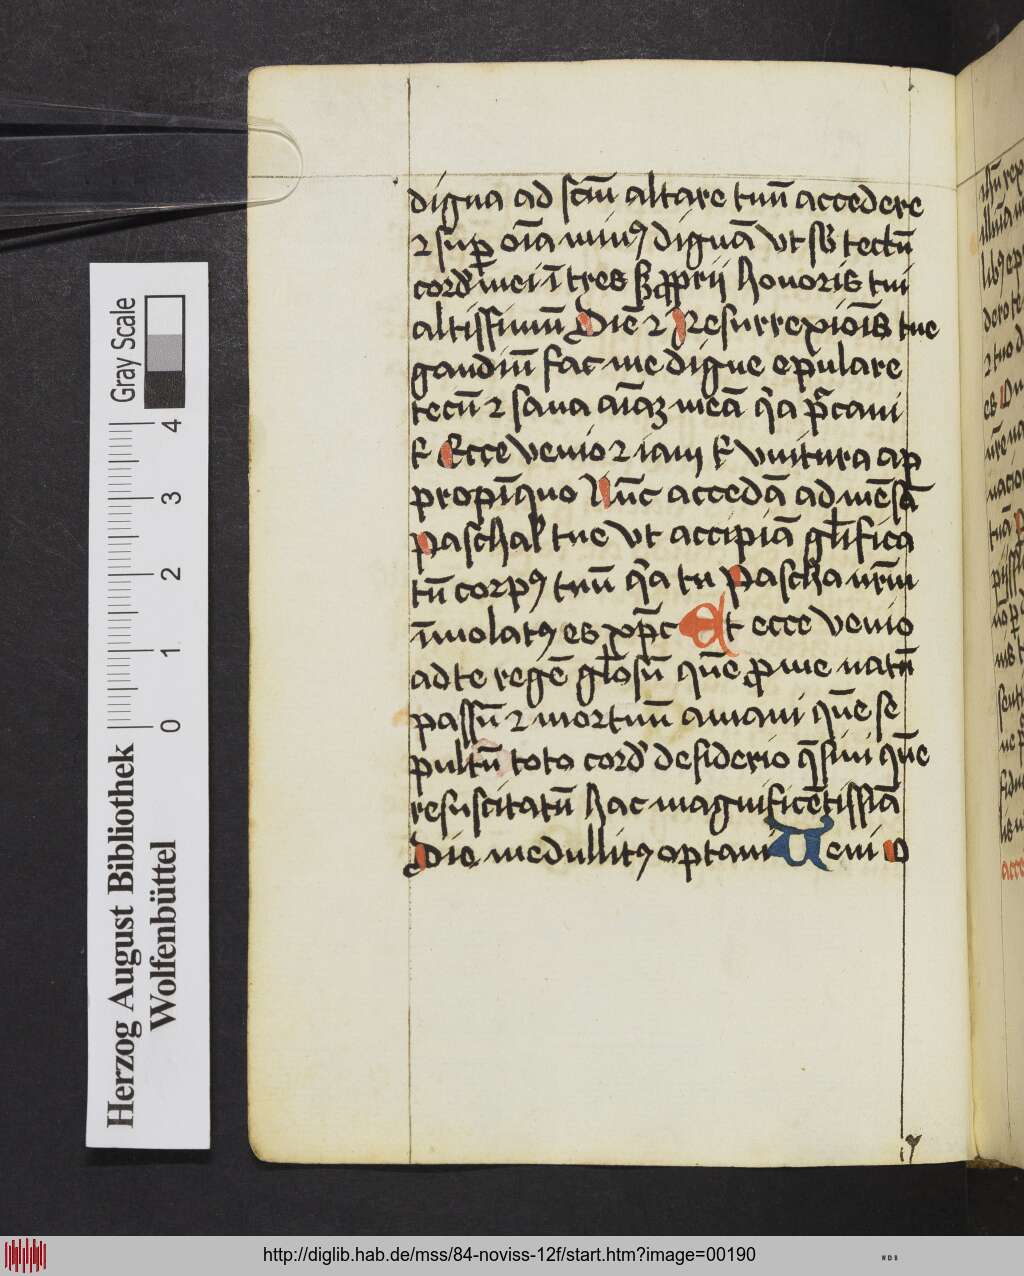 digna ad scm̄ altare tuū accedere
⁊ suꝑ oīa minꝰ dignā vt sb̄ tectū
cord' mei ītres sꝫ ꝓprij honoris tui
altissimū Diē ⁊ Resurrexiōis tue
gaudiū fac me digne epulare
tecū ⁊ sana aīaꝫ meā q̄a p̄caui
Ecce venio ⁊ iam vnitura ap
propīquo Nūc accedā ad mēsā
Paschal' tue vt accipiā gl̄ifica
tū corpꝰ tuū q̄a tu Pascha nr̄m
īmolatꝰ es xp̄c Et ecce venio
ad te regē gl̄osū quē ꝓ me natū
passū ⁊ mortuū amaui quē se
pultū toto cord' desiderio q̄siui quē
resuscitatū hac magnificētissīa
Die medullitꝰ optaui Veni O
Gray Scale
4
3
2
1
0
Herzog August Bibliothek
Wolfenbüttel
http://diglib.hab.de/mss/84-noviss-12f/start.htm?image=00190